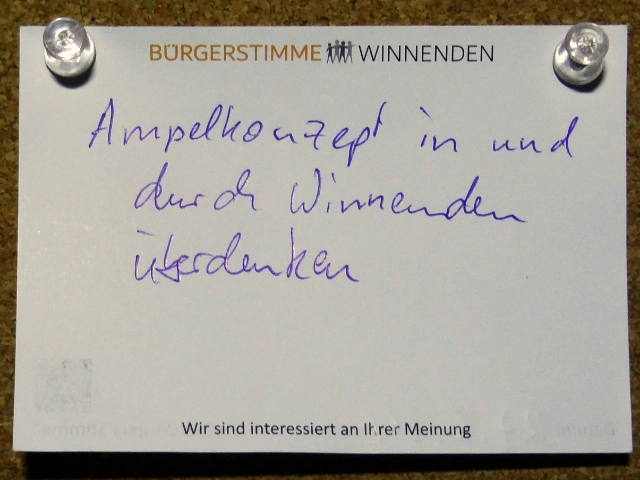 BÜRGERSTIMME WINNENDEN
Ampelkonzept in und
durch Winnenden
überdenken
Wir sind interessiert an Ihrer Meinung